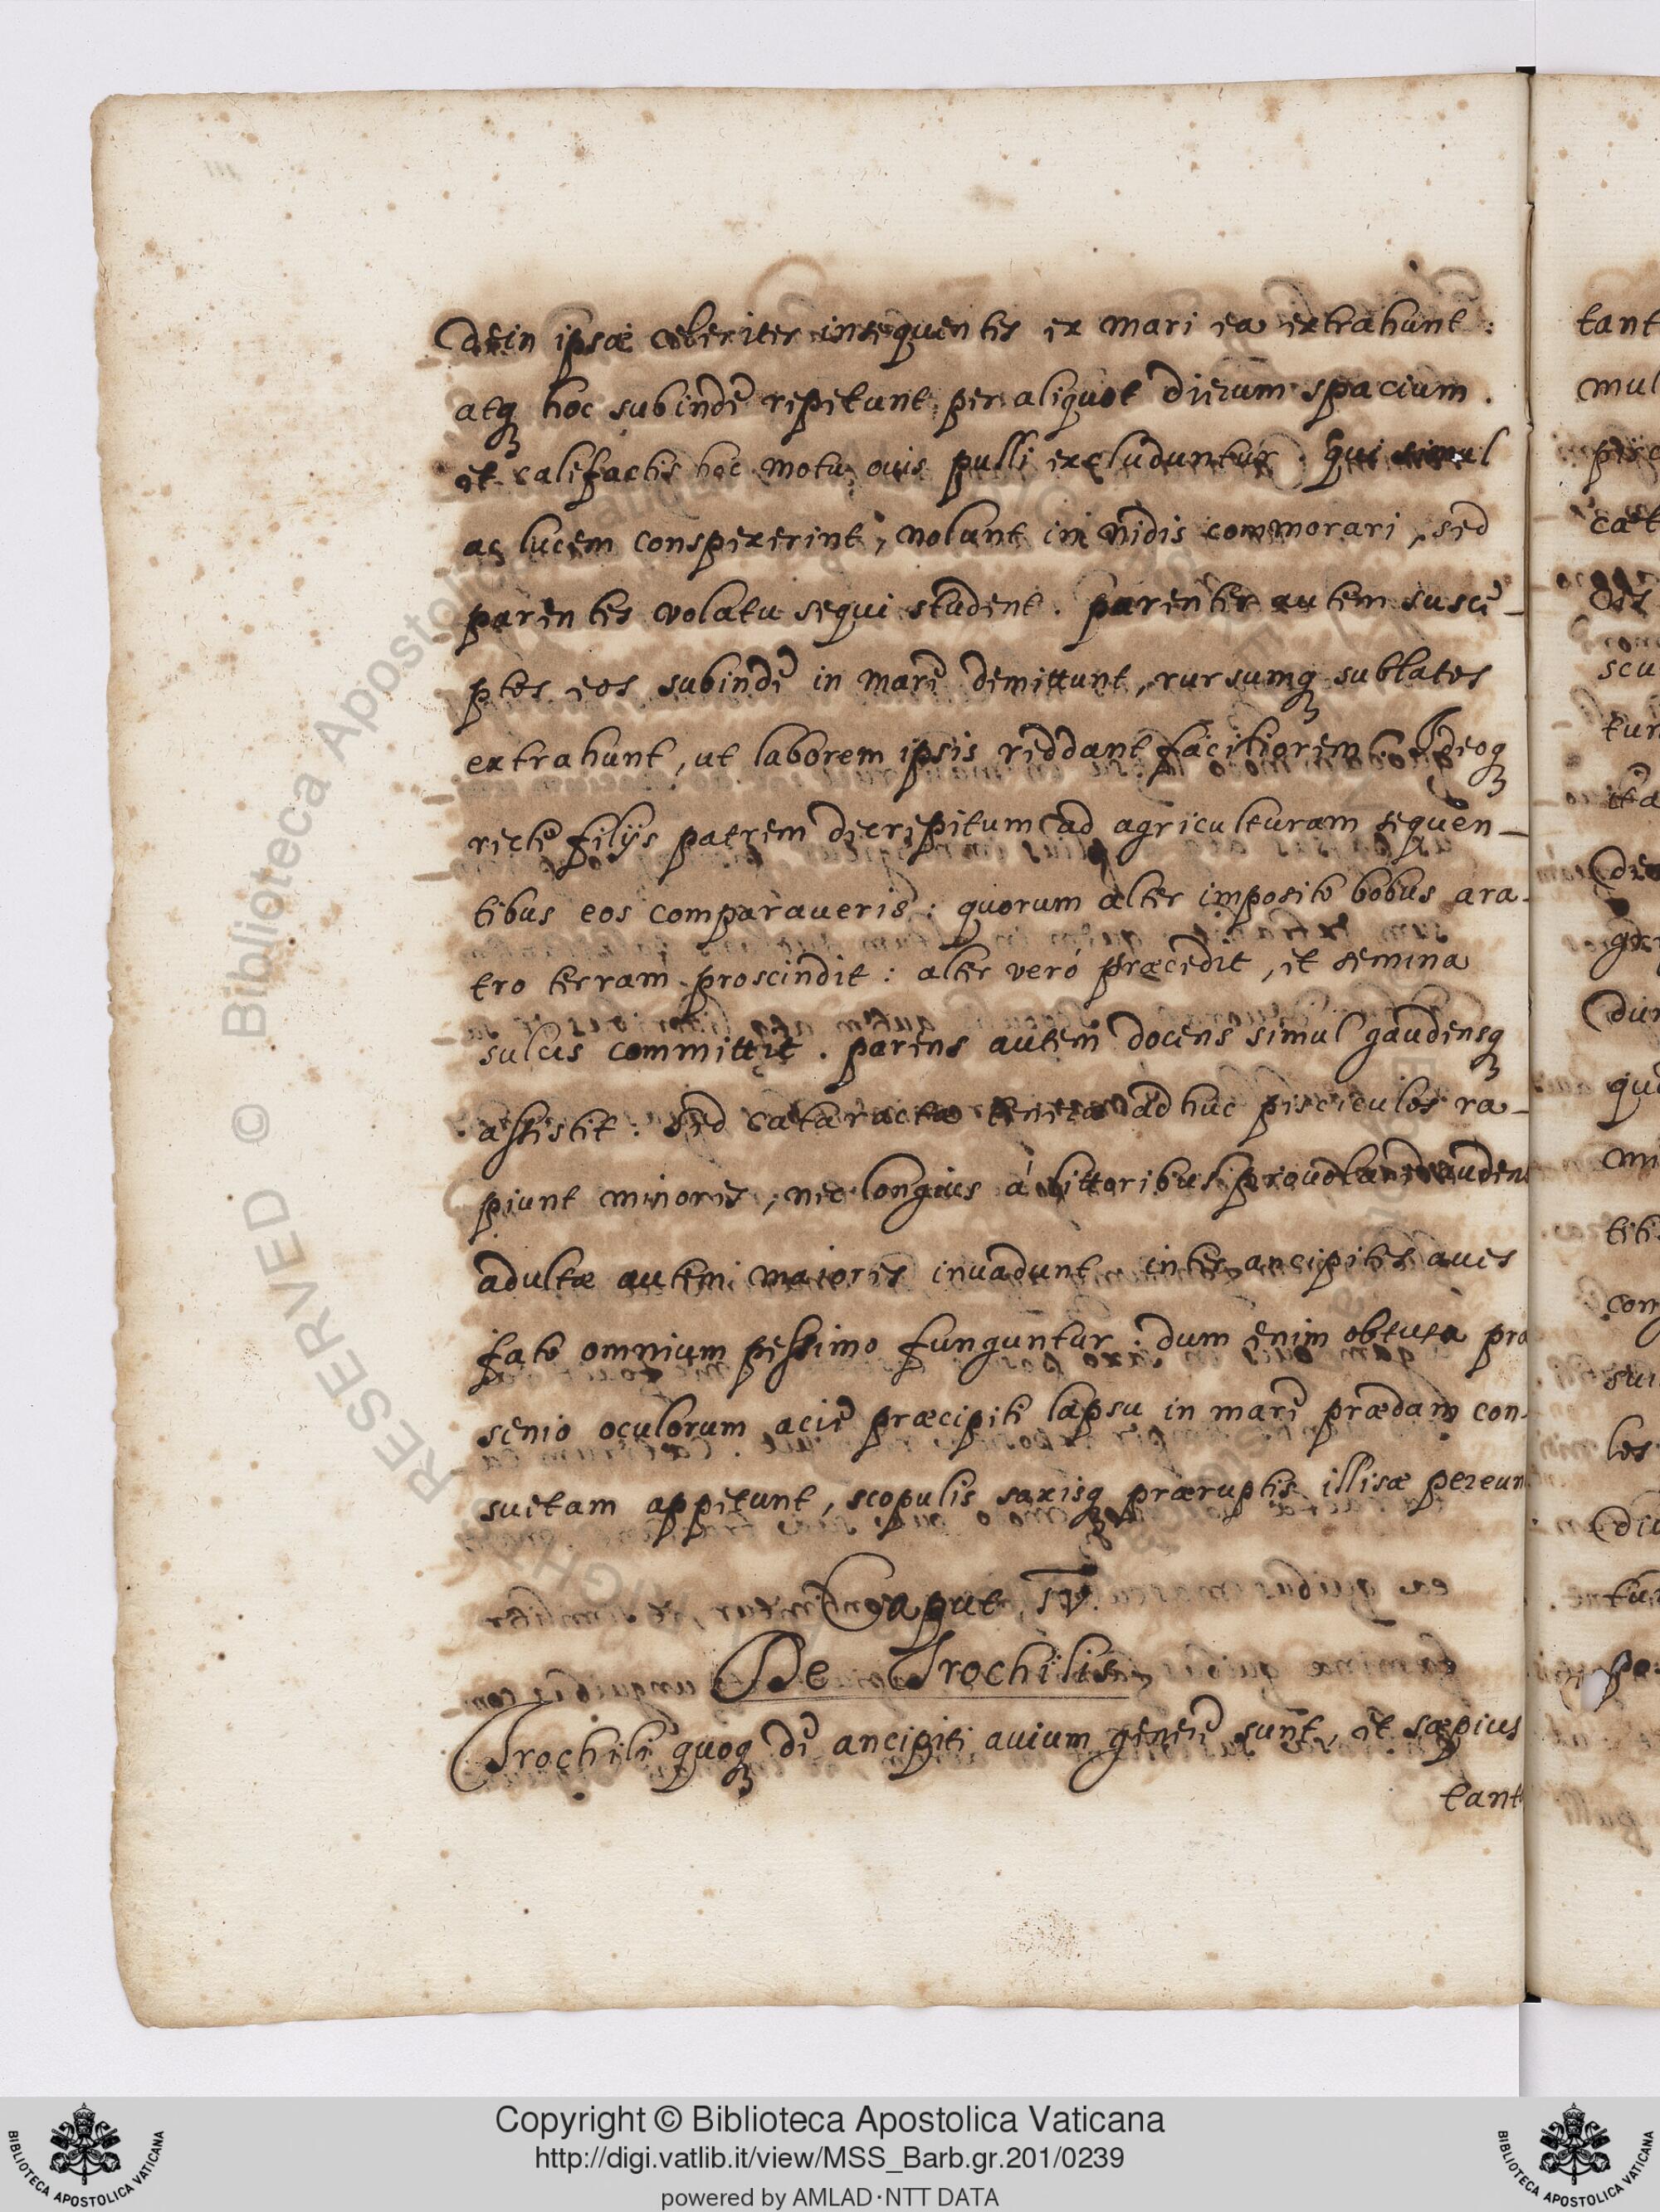 dein ipsæ celeriter insequentes ex mari ea extrahunt:
atq hoc subinde repetunt per aliquot dierum spacium.
et calefactis hoc motu ouis pulli excluduntur. qui simul
ac lucem conspexerint, nolunt in nidis commorari, sed
parentes volatu sequi student. parentes autem susce-
ptos eos subinde in mare demittunt, rursumq sublatos
extrahunt, ut laborem ipsis reddant faciliorem. Ideoq
recte filijs patrem decrepitum ad agriculturam sequen-
tibus eos comparaueris: quorum alter imposito bobus ara-
tro terram proscindit: alter veró præcedit, et semina
sulcis committit. parens autem docens simul gaudensq
assistit. sed cataractæ teneræ adhuc pisciculos ra-
piunt minores, nec longius á littoribus prouolare audent
adultæ autem maiores inuadunt. inter ancipites aues
fato omnium pessimo funguntur. dum enim obtusa præ
senio oculorum acie præcipiti lapsu in mare prædam con-
suetam appetunt, scopulis saxisq præruptis illisæ pereunt
Caput IV.
De Trochilis
Trochili quoq de ancipiti auium genere sunt, et sæpius
tant
tant
mul
pisc
cæt
scu
tur
ita
deo
gr
dur
qu
mi
titi
com
sui
los
diu
tur
RESERVED © Biblioteca Apostolica
Copyright © Biblioteca Apostolica Vaticana
http://digi.vatlib.it/view/MSS_Barb.gr.201/0239
powered by AMLAD·NTT DATA
BIBLIOTECA APOSTOLICA VATICANA
BIBLIOTECA APOSTOLICA VATICANA